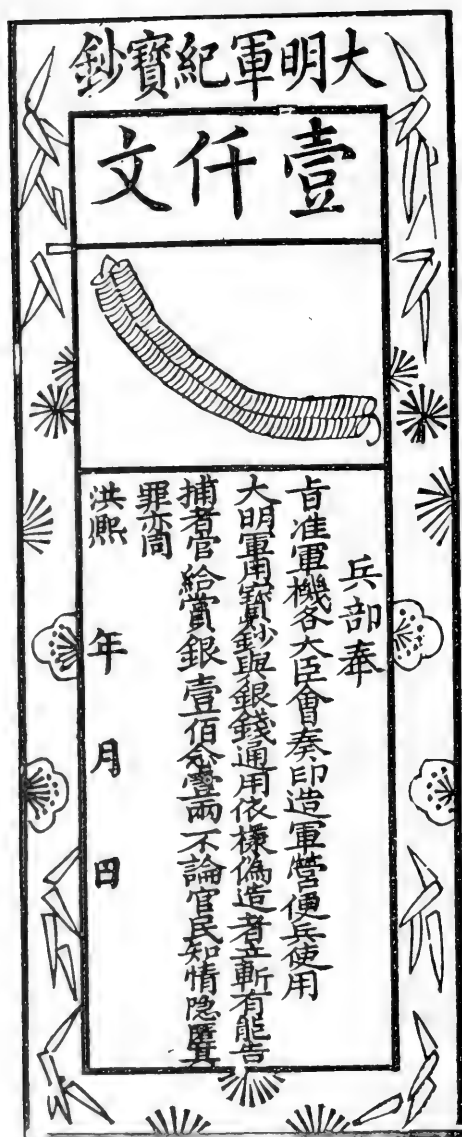 大明軍紀寶鈔
壹仟文
兵部奉
旨准軍機各大臣會奏印造軍營便兵使用
大明軍用寶鈔與銀錢通用依樣偽造者立斬有能告
捕者官給賞銀壹佰念壹兩不論官民知情隐匿其
罪亦同
洪熙 年 月 日